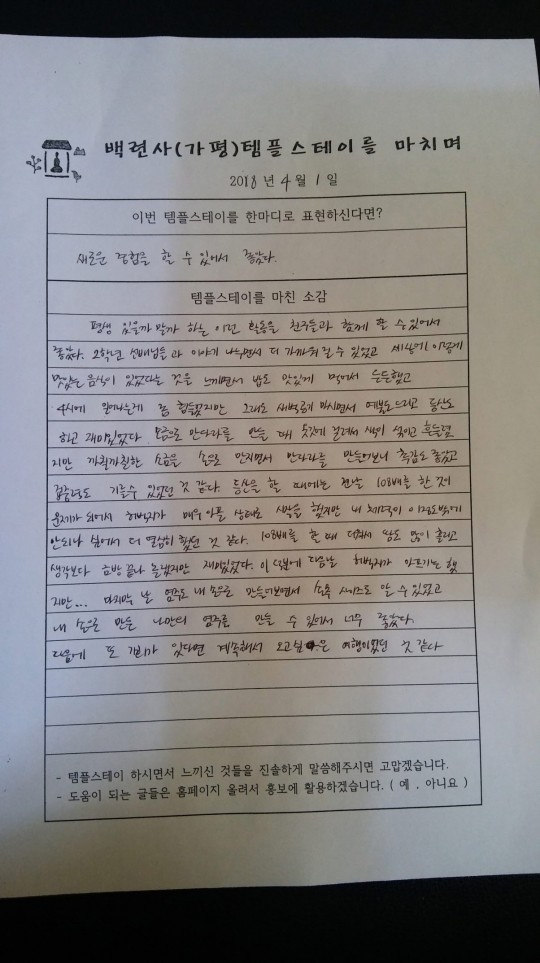 백련사(가평)템플스테이를 마치며
2018년 4월 1일
이번 템플스테이를 한마디로 표현하신다면?
새로운 경험을 할 수 있어서 좋았다.
템플스테이를 마친 소감
평생 있을까 말까 하는 이런 활동을 친구들과 함께 할 수 있어서
좋았다. 2학년 선배님들과 이야기 나누면서 더 가까워질 수 있었고 세상에 이렇게
맛있는 음식이 있었다는 것을 느끼면서 밥도 맛있게 먹어서 든든했고
4시에 일어나는게 좀 힘들었지만 그래도 새벽공기 마시면서 예불도드리고 등산도
하고 재미있었다. 모래으로 만다라를 만들 때 숫에 걸려서 색이 섞이고 흔들렸
지만 까칠까칠한 소금을 손으로 만지면서 만다라를 만들어보니 촉감도 좋았고
집중력도 기를수 있었던 것 같다. 등산을 할 때에는 전날 108배를 한 것이
문제가 되어서 허벅지가 매우 아픈 상태로 시작을 했지만 내 체력이 이정도밖에
안되나 싶어서 더 열심히 했던 것 같다. 108배를 할 때 더워서 땀도 많이 흘리고
생각보다 금방 끝나 놀랬지만 재미있었다. 이 덕분에 다음날 허벅지가 아프기는 했
지만... 마지막 날 염주도 내 손으로 만들어보면서 손목 사이즈도 알 수 있었고
내 손으로 만든 나만의 염주를 만들 수 있어서 너무 좋았다.
다음에 또 기회가 있다면 계속해서 오고싶은 여행이었던 것 같다
- 템플스테이 하시면서 느끼신 것들을 진솔하게 말씀해주시면 고맙겠습니다.
- 도움이 되는 글들은 홈페이지 올려서 홍보에 활용하겠습니다. ( 예 , 아니요 )